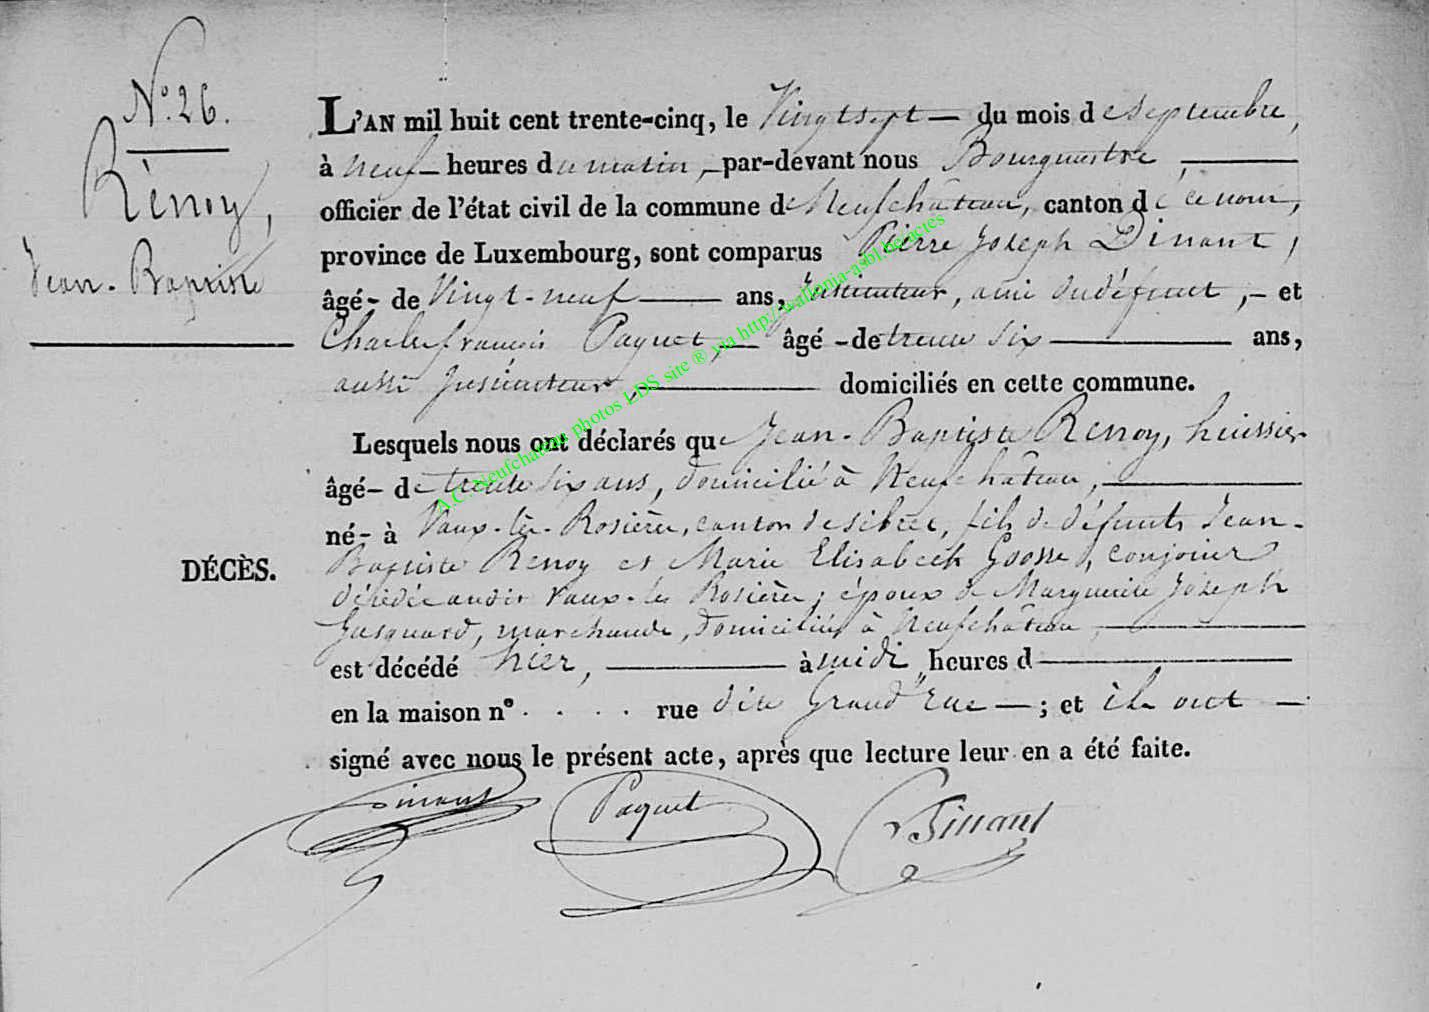 N° 26.
Rènoy,
Jean-Baptiste
DÉCÈS.
L'AN mil huit cent trente-cinq, le Vingt sept — du mois de Septembre,
à neuf — heures du matin, — par-devant nous Bourgmestre, —
officier de l'état civil de la commune de Neufchâteau, canton de ce nom,
province de Luxembourg, sont comparus Pierre Joseph Dinant,
âgé - de Vingt-neuf — ans, Instituteur, ami du défunt, — et
Charles françois Paquet, — âgé - de trente six — ans,
aussi Instituteur, — domiciliés en cette commune.
Lesquels nous ont déclarés que Jean-Baptiste Renoy, huissier
âgé - de trente six ans, domicilié à Neufchâteau, —
né - à Vaux-lez-Rosière, canton de Sibret, fils de défunts Jean-
Baptiste Renoy et Marie Elisabeth Goosse, conjoints
décédés audit Vaux-lez Rosière; époux de Marguerite Joseph
marchande, domiciliée à Neufchâteau, —
est décédé hier, — à midi heures d —
en la maison n° . . . . rue dite Grand'Rue — ; et ils ont —
signé avec nous le présent acte, après que lecture leur en a été faite.
Dinant Paquet Dinant
A.C. Neufchateau photos LDS site ® via http://wallonia-asbl.be/actes